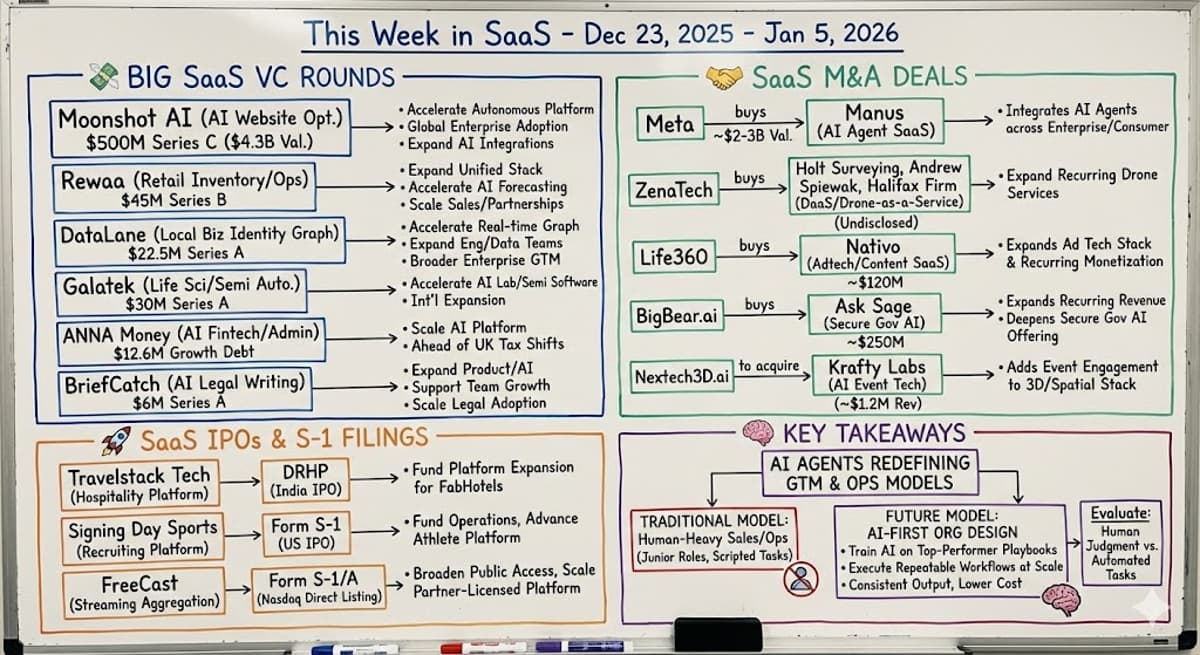 This Week in SaaS – Dec 23, 2025 – Jan 5, 2026
BIG SaaS VC ROUNDS
Moonshot AI (AI Website Opt.)
$500M Series C ($4.3B Val.)
• Accelerate Autonomous Platform
• Global Enterprise Adoption
• Expand AI Integrations
Rewaa (Retail Inventory/Ops)
$45M Series B
• Expand Unified Stack
• Accelerate AI Forecasting
• Scale Sales/Partnerships
DataLane (Local Biz Identity Graph)
$22.5M Series A
• Accelerate Real-time Graph
• Expand Eng/Data Teams
• Broader Enterprise GTM
Galatek (Life Sci/Semi Auto.)
$30M Series A
• Accelerate AI Lab/Semi Software
• Int'l Expansion
ANNA Money (AI Fintech/Admin)
$12.6M Growth Debt
• Scale AI Platform
• Ahead of UK Tax Shifts
BriefCatch (AI Legal Writing)
$6M Series A
• Expand Product/AI
• Support Team Growth
• Scale Legal Adoption
SaaS M&A DEALS
Meta
buys
~$2-3B Val.
Manus
(AI Agent SaaS)
• Integrates AI Agents
across Enterprise/Consumer
ZenaTech
buys
Holt Surveying, Andrew
Spiewak, Halifax Firm
(DaaS/Drone-as-a-Service)
(Undisclosed)
• Expand Recurring Drone
Services
Life360
buys
Nativo
(Adtech/Content SaaS)
~$120M
• Expands Ad Tech Stack
& Recurring Monetization
BigBear.ai
buys
Ask Sage
(Secure Gov AI)
~$250M
• Expands Recurring Revenue
• Deepens Secure Gov AI
Offering
Nextech3D.ai
to acquire
Krafty Labs
(AI Event Tech)
(~$1.2M Rev)
• Adds Event Engagement
to 3D/Spatial Stack
SaaS IPOs & S-1 FILINGS
Travelstack Tech
(Hospitality Platform)
DRHP
(India IPO)
• Fund Platform Expansion
for FabHotels
Signing Day Sports
(Recruiting Platform)
Form S-1
(US IPO)
• Fund Operations, Advance
Athlete Platform
FreeCast
(Streaming Aggregation)
Form S-1/A
(Nasdaq Direct Listing)
• Broaden Public Access, Scale
Partner-Licensed Platform
KEY TAKEAWAYS
AI AGENTS REDEFINING
GTM & OPS MODELS
TRADITIONAL MODEL:
Human-Heavy Sales/Ops
(Junior Roles, Scripted Tasks)
FUTURE MODEL:
AI-FIRST ORG DESIGN
• Train AI on Top-Performer Playbooks
• Execute Repeatable Workflows at Scale
• Consistent Output, Lower Cost
Evaluate:
Human
Judgment vs.
Automated
Tasks